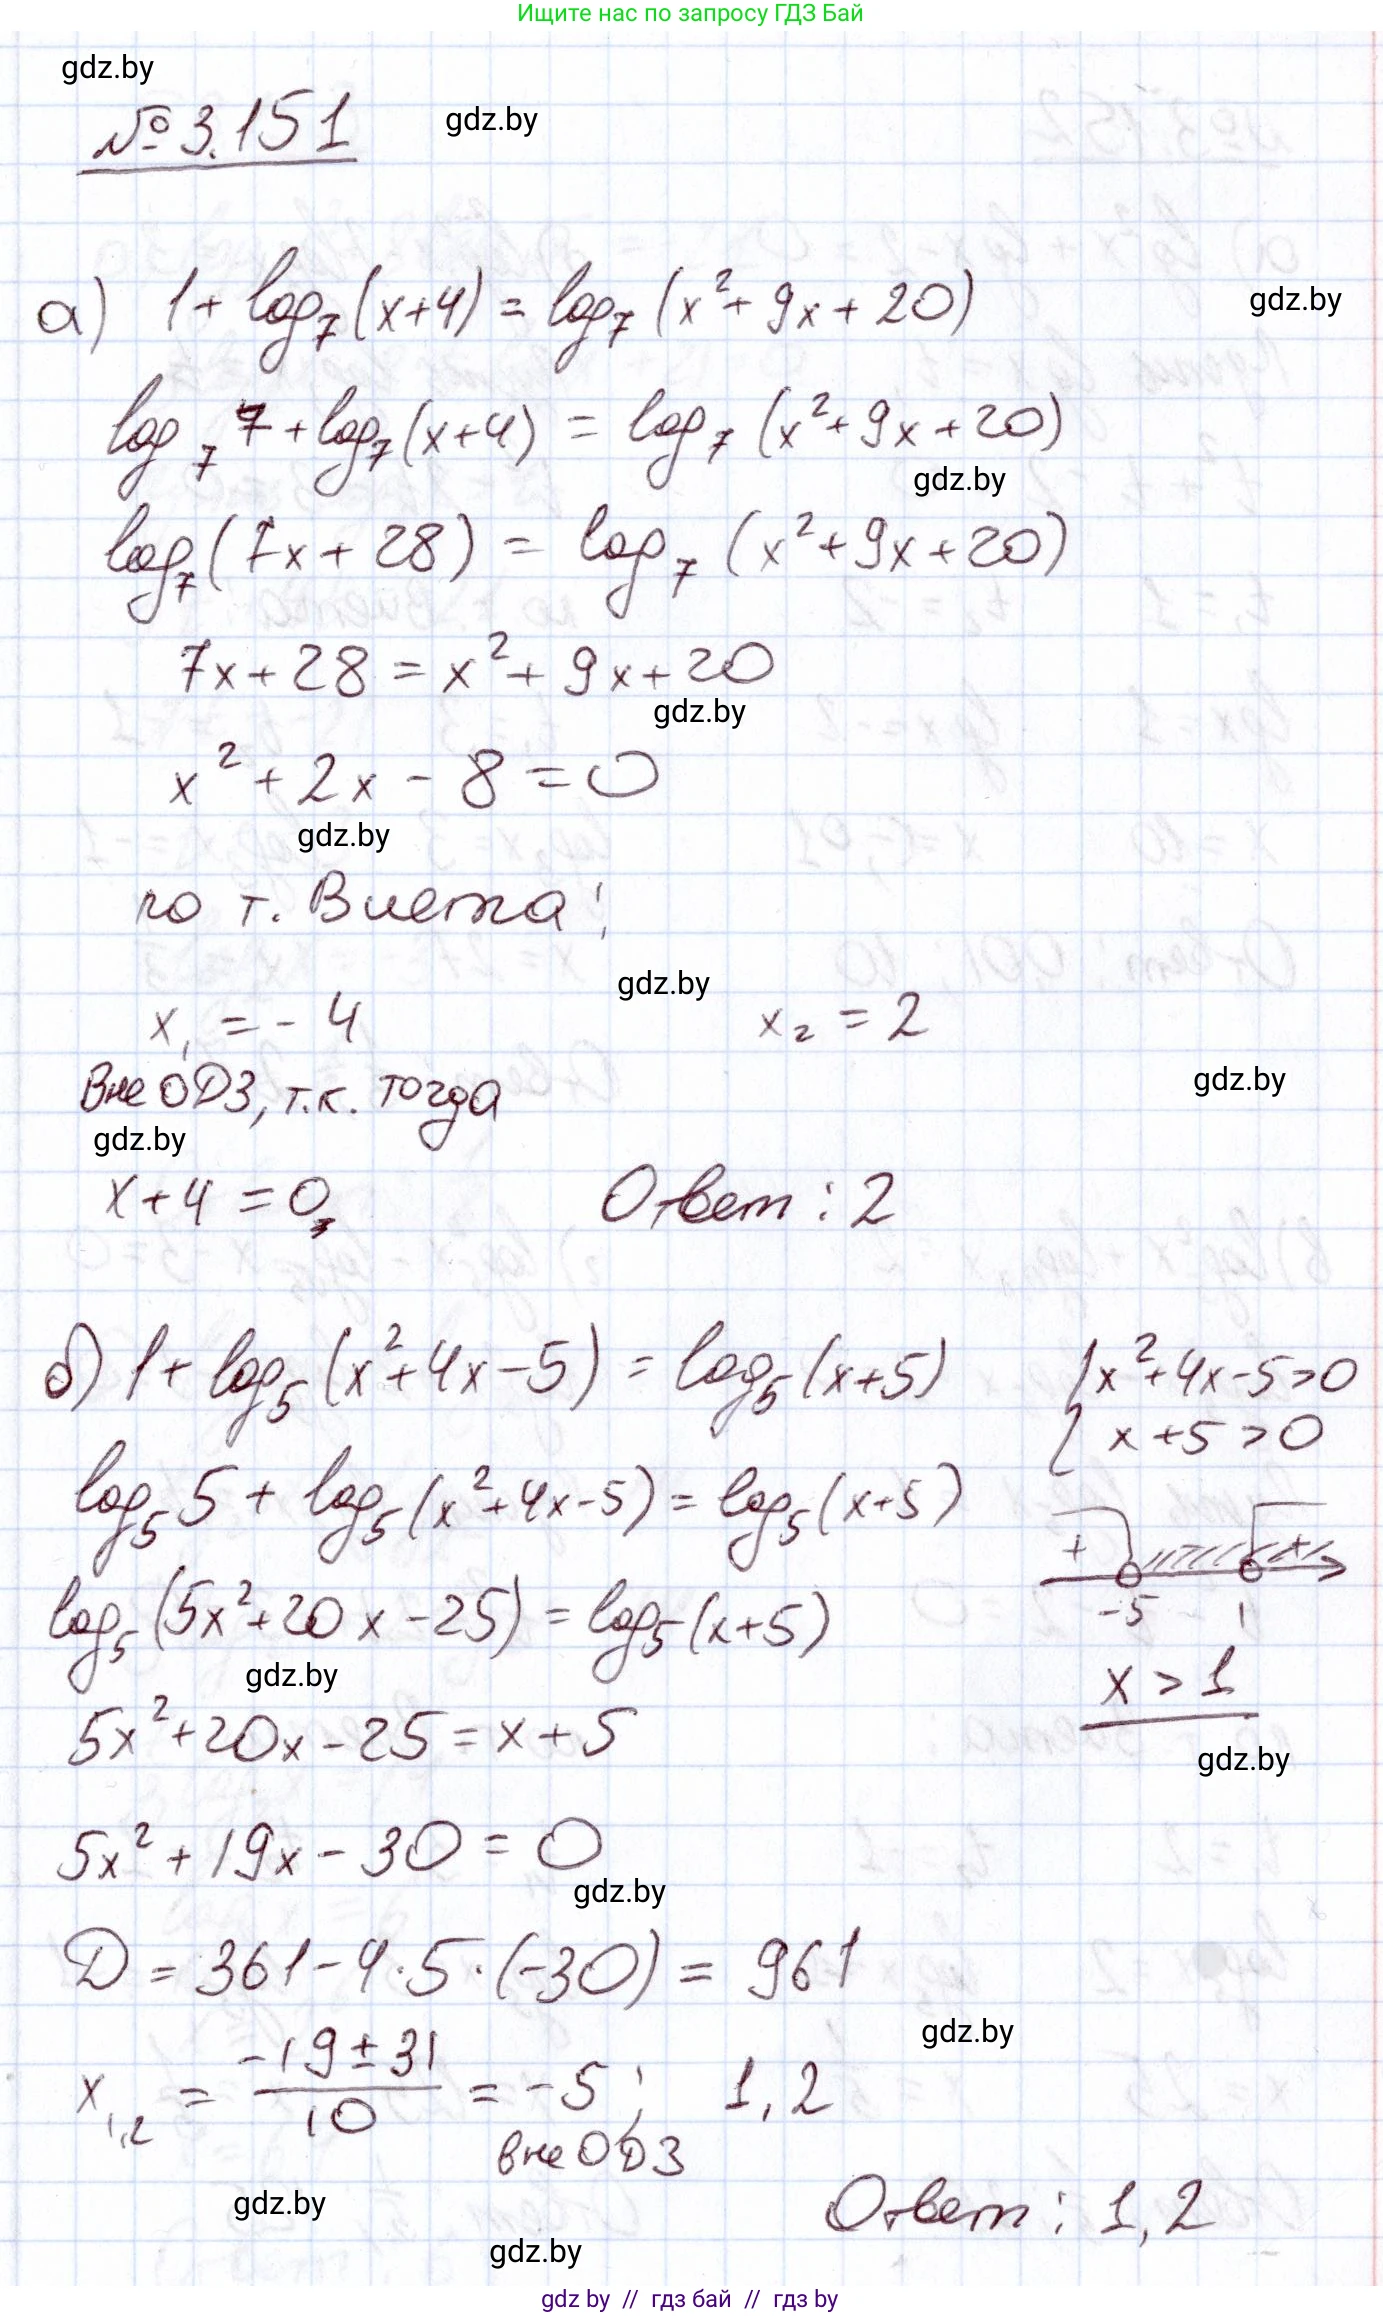 Ищите нас по запросу ГДЗ Бай
gdz.by
№ 3.151
gdz.by
а) 1 + log₇(x+4) = log₇(x²+9x+20)
gdz.by
log₇7 + log₇(x+4) = log₇(x²+9x+20)
gdz.by
log₇(7x+28) = log₇(x²+9x+20)
7x+28 = x²+9x+20
gdz.by
x²+2x-8=0
gdz.by
по т. Виета:
gdz.by
x₁ = -4 x₂ = 2
Вне ОДЗ, т.к. тогда
gdz.by
gdz.by
x+4=0,
Ответ: 2
б) 1 + log₅(x²+4x-5) = log₅(x+5)
{ x²+4x-5>0
x+5>0
log₅5 + log₅(x²+4x-5) = log₅(x+5)
+ +
-5 1
log₅(5x²+20x-25) = log₅(x+5)
gdz.by
x > 1
5x²+20x-25 = x+5
gdz.by
5x²+19x-30=0
gdz.by
D = 361-4·5·(-30) = 961
gdz.by
x₁,₂ = (-19±31)/10 = -5; 1,2
вне ОДЗ
gdz.by
Ответ: 1,2
gdz.by
gdz by // гдз бай // гдз by